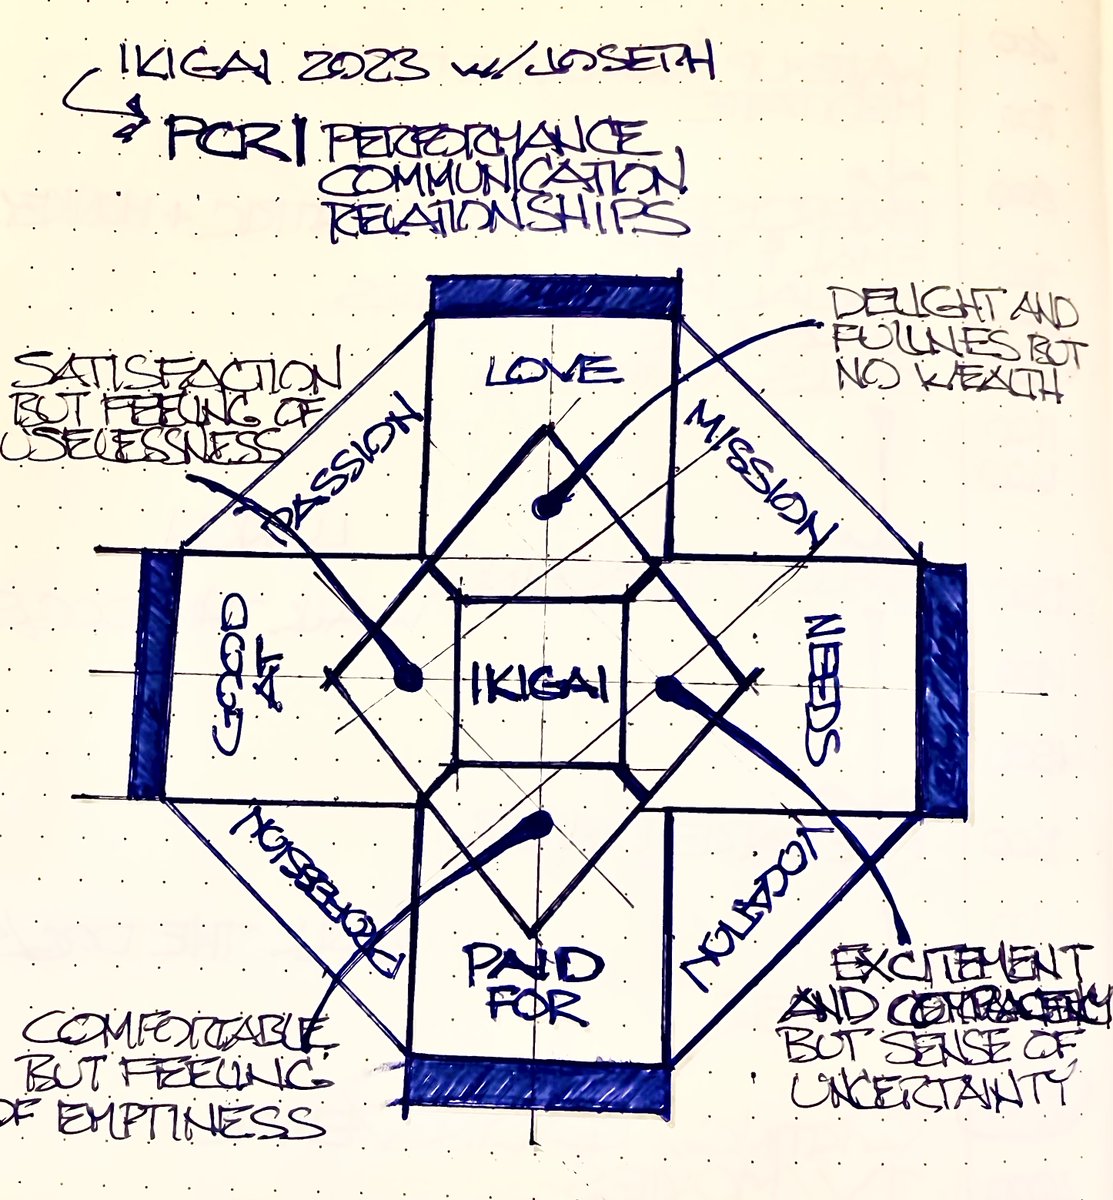 IKIGAI 2023 w/JOSEPH
PCR| PERFORMANCE
COMMUNICATION
RELATIONSHIPS
DELIGHT AND
FULLNES BUT
NO WEALTH
SATISFACTION
BUT FEELING OF
USELESSNESS
LOVE
PASSION
MISSION
GOOD
AT
IKIGAI
NEEDS
PROFESSION
VOCATION
PAID
FOR
EXCITEMENT
AND
BUT SENSE OF
UNCERTAINTY
COMFORTABLE
BUT FEELING
OF EMPTINESS